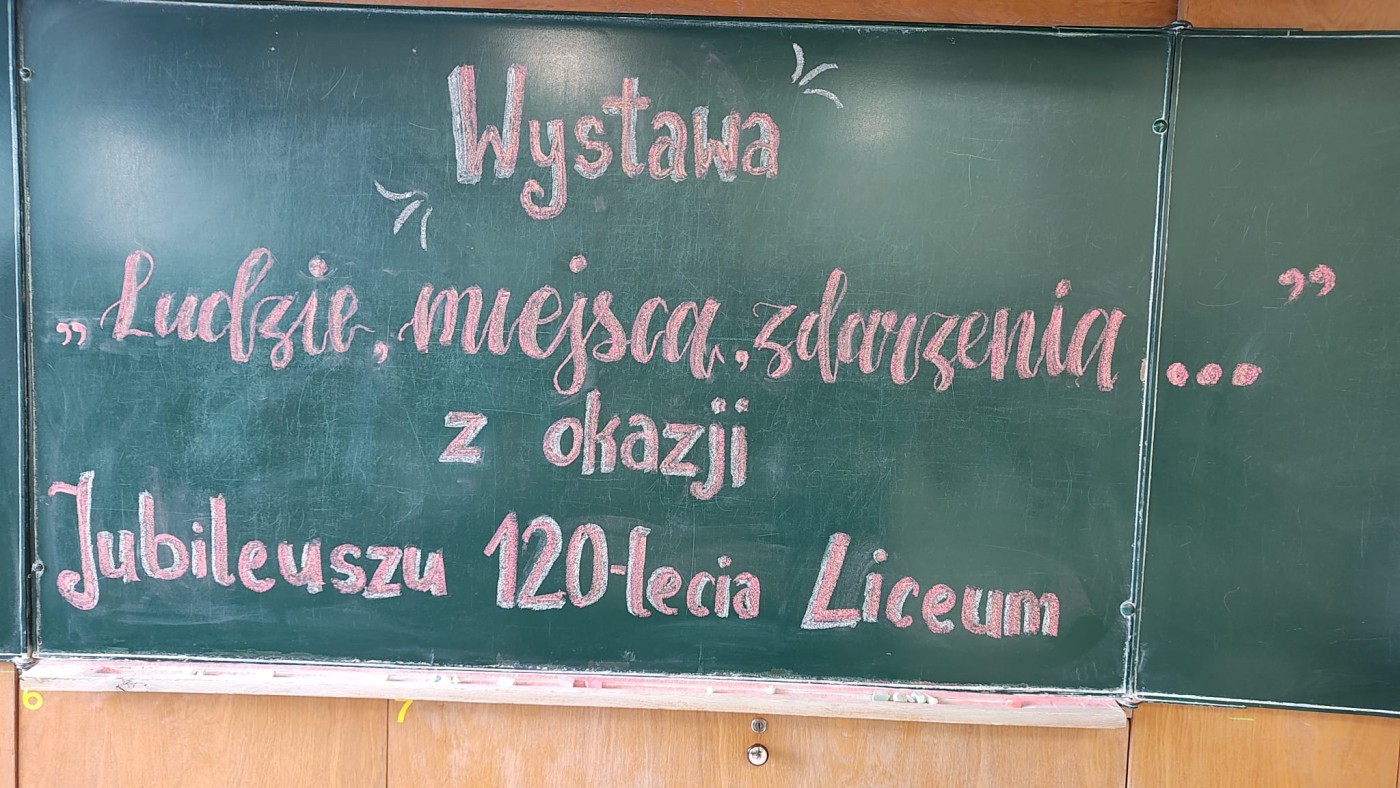 Wystawa
„Ludzie, miejsca, zdarzenia ...”
z okazji
Jubileuszu 120-lecia Liceum
6 7